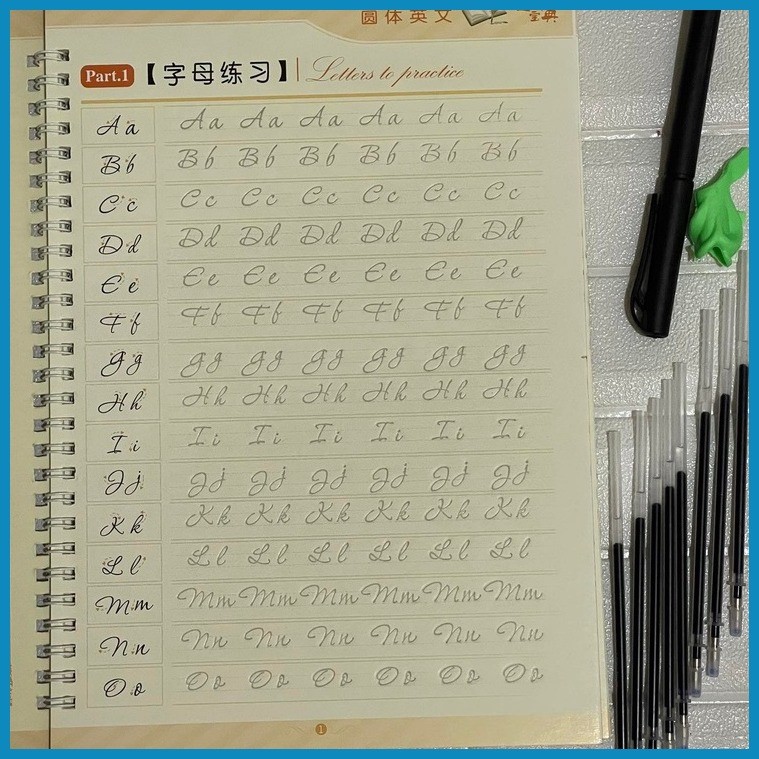 圆体英文 宝典
Part.1 【字母练习】 Letters to practice
A a A a A a A a A a A a A a
B b B b B b B b B b B b B b
C c C c C c C c C c C c C c
D d D d D d D d D d D d D d
E e E e E e E e E e E e E e
F f F f F f F f F f F f F f
G g G g G g G g G g G g G g
H h H h H h H h H h H h H h
I i I i I i I i I i I i I i
J j J j J j J j J j J j J j
K k K k K k K k K k K k K k
L l L l L l L l L l L l L l
M m M m M m M m M m M m M m
N n N n N n N n N n N n N n
O o O o O o O o O o O o O o
1